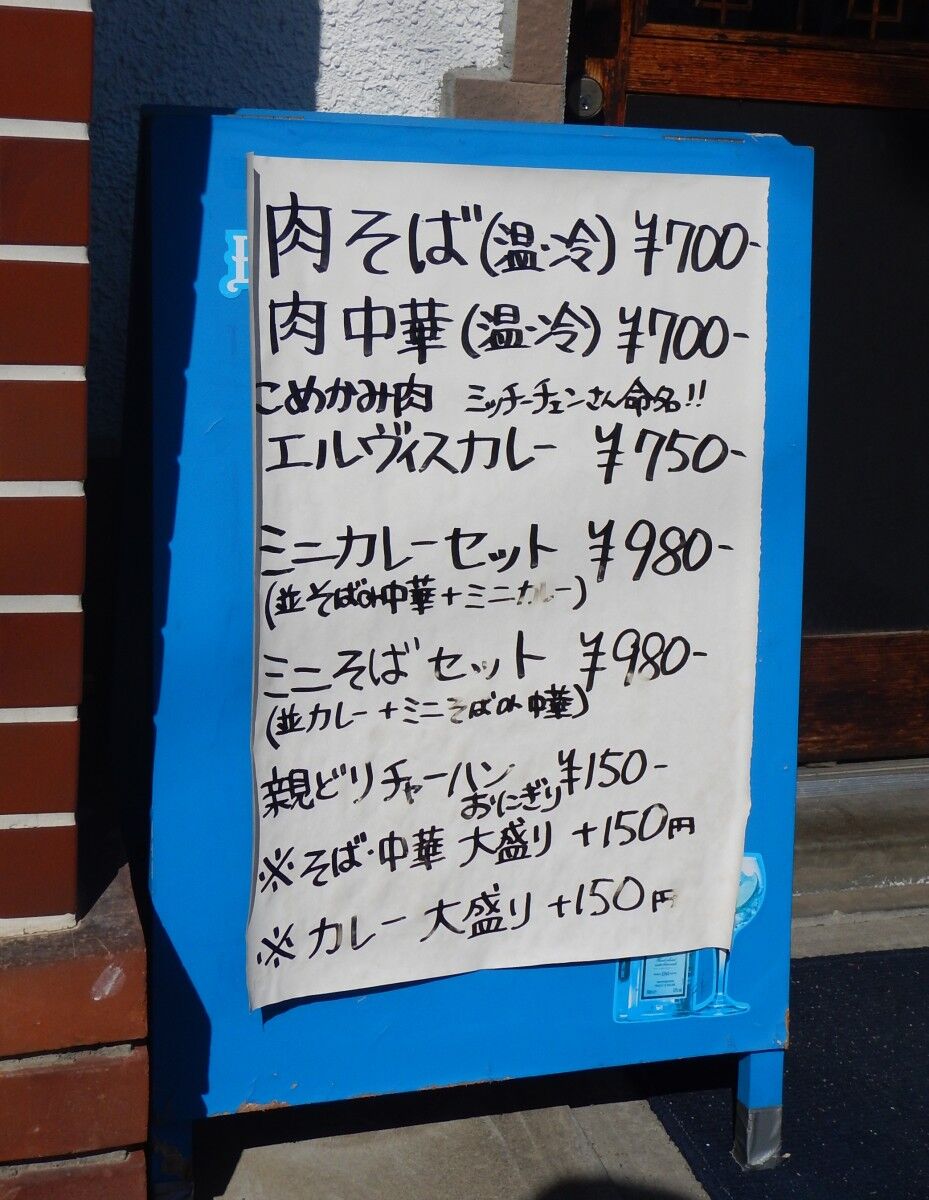 肉そば(温・冷) ¥700-
肉中華(温・冷) ¥700-
こめかみ肉 ミッチーチェンさん命名!!
エルヴィスカレー ¥750-
ミニカレーセット ¥980-
(並そばor中華+ミニカレー)
ミニそばセット ¥980-
(並カレー+ミニそばor中華)
親どりチャーハン ¥150-
おにぎり
※そば・中華 大盛り +150円
※カレー 大盛り +150円